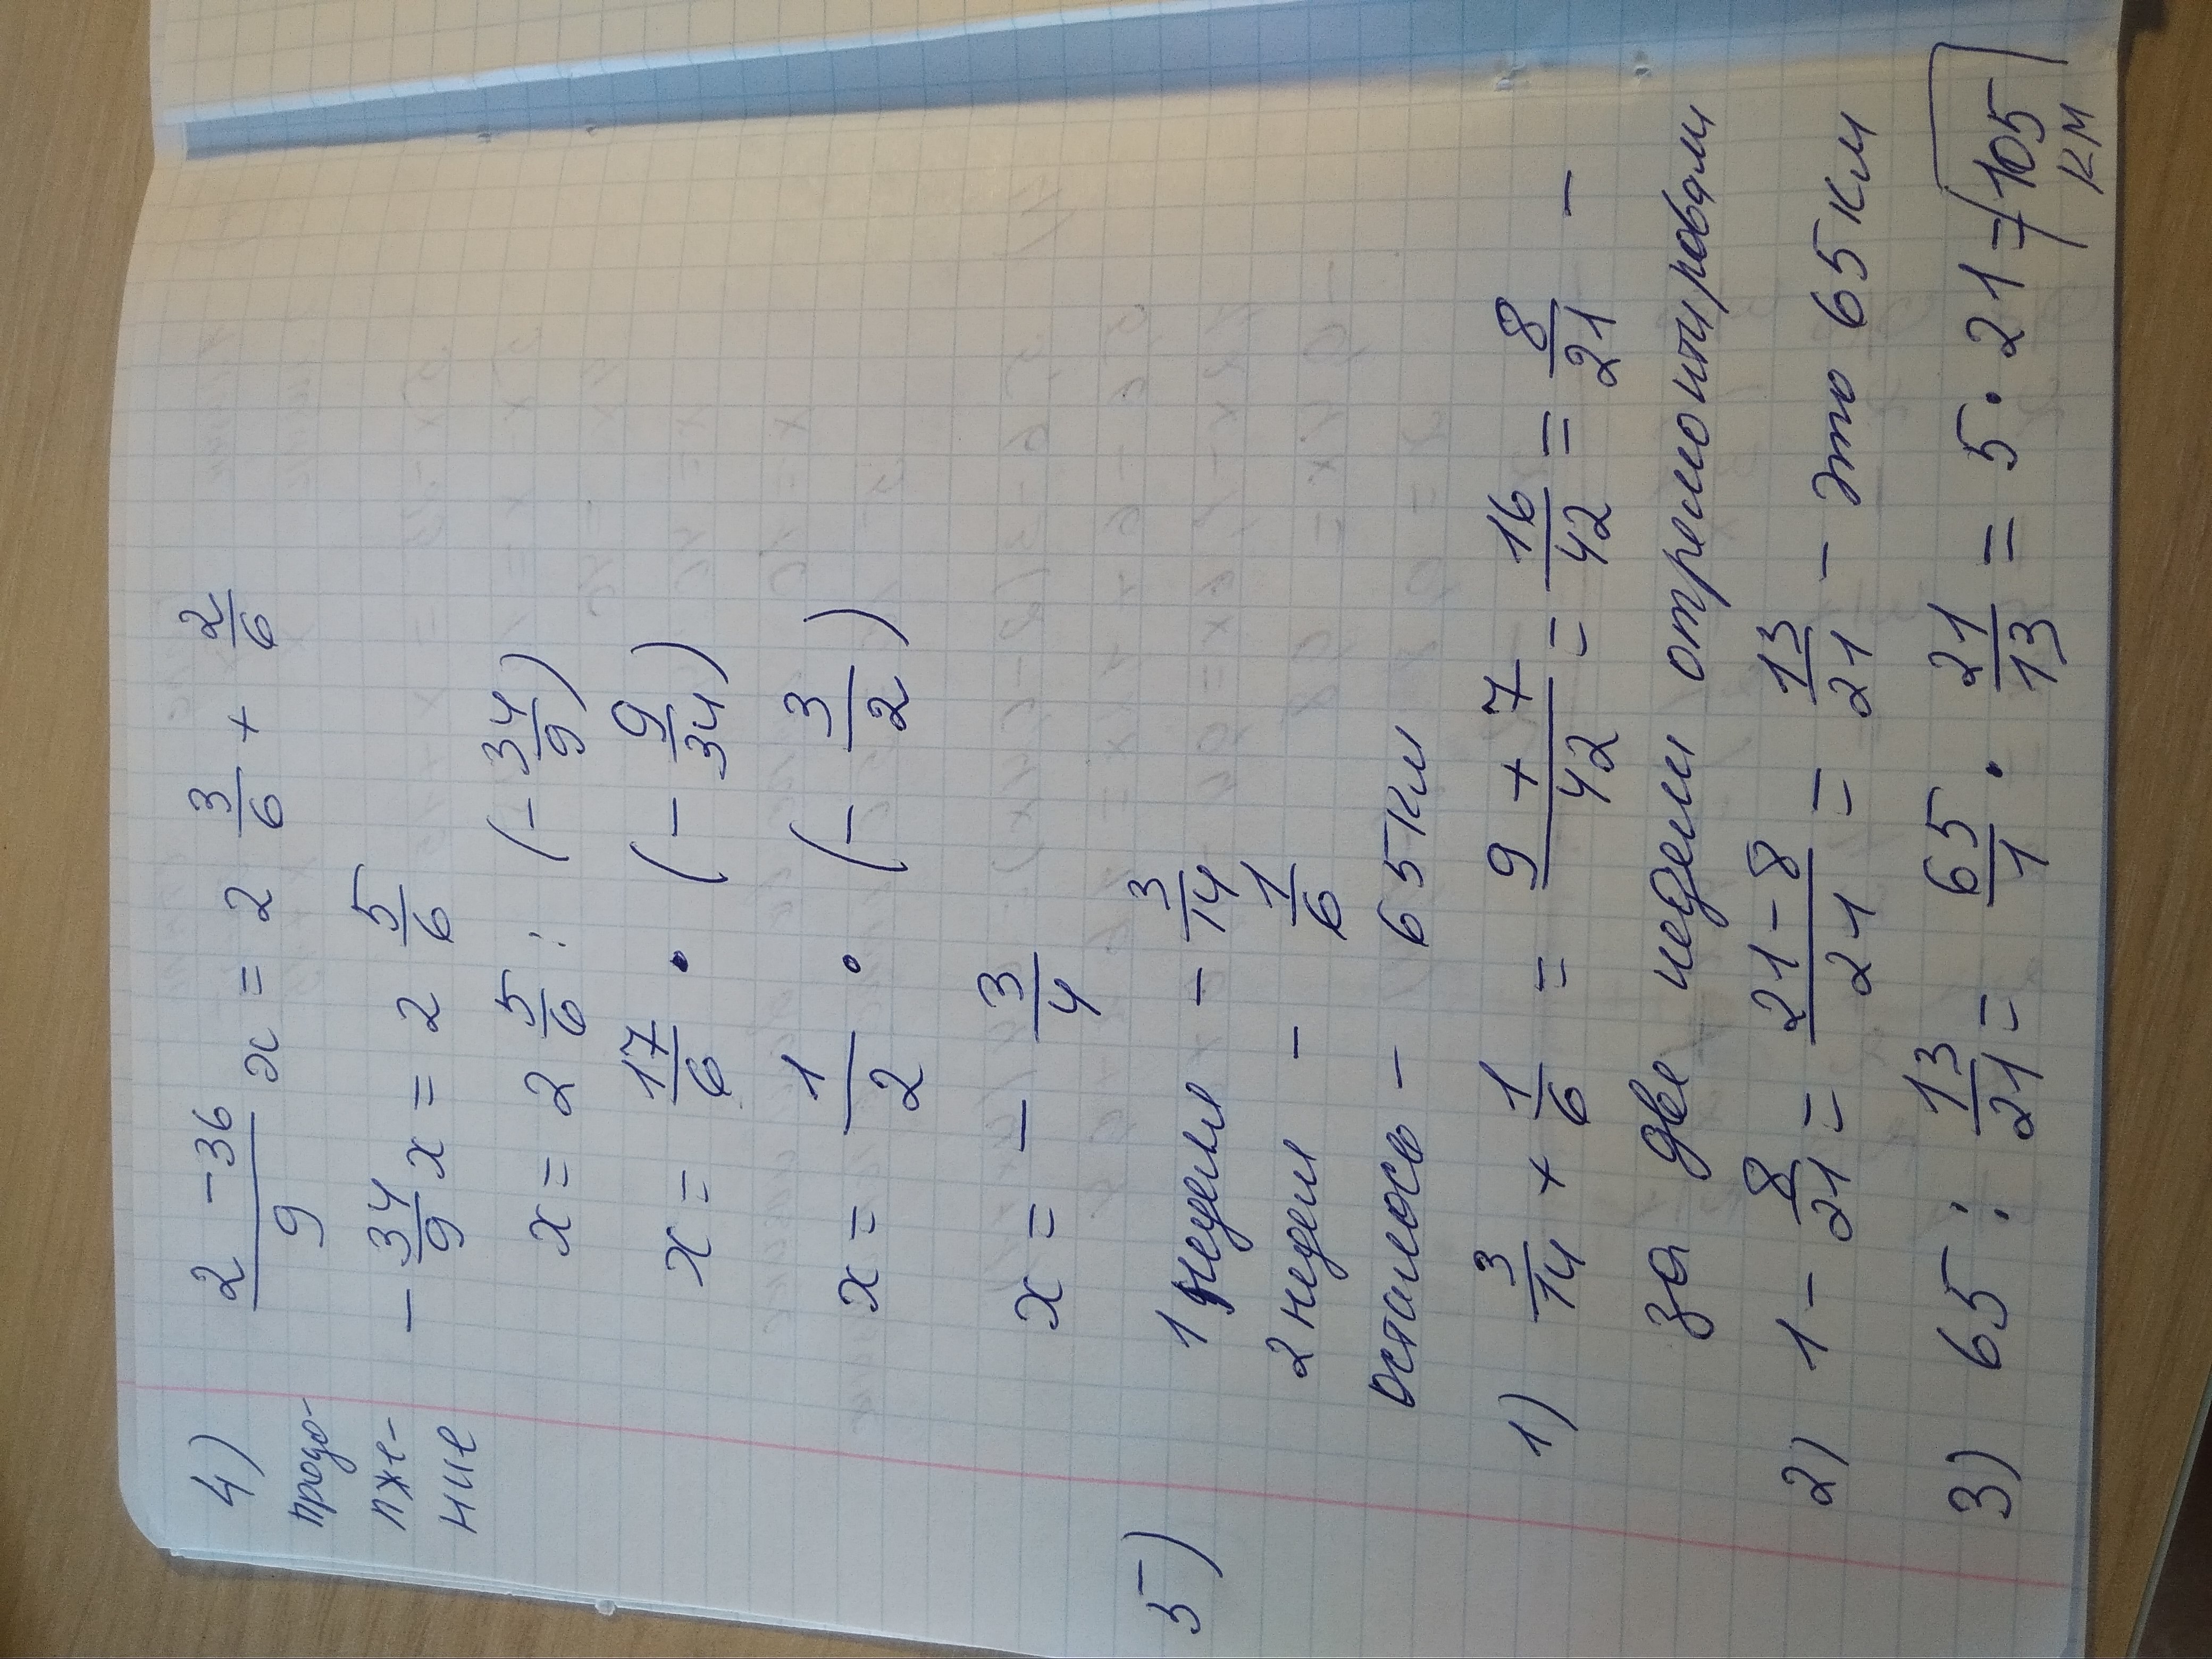 4) (2 - 36)/9 x = 2 3/6 + 2/6
продо-
лже-
ние
- 34/9 x = 2 5/6
x = 2 5/6 : (- 34/9)
x = 17/6 · (- 9/34)
x = 1/2 · (- 3/2)
x = - 3/4
5) 1 недели - 3/14
2 недели - 1/6
осталось - 65 км
1) 3/14 + 1/6 = (9 + 7)/42 = 16/42 = 8/21 -
за две недели отремонтировали
2) 1 - 8/21 = (21 - 8)/21 = 13/21 - это 65 км
3) 65 : 13/21 = 65/1 · 21/13 = 5 · 21 = 105
км